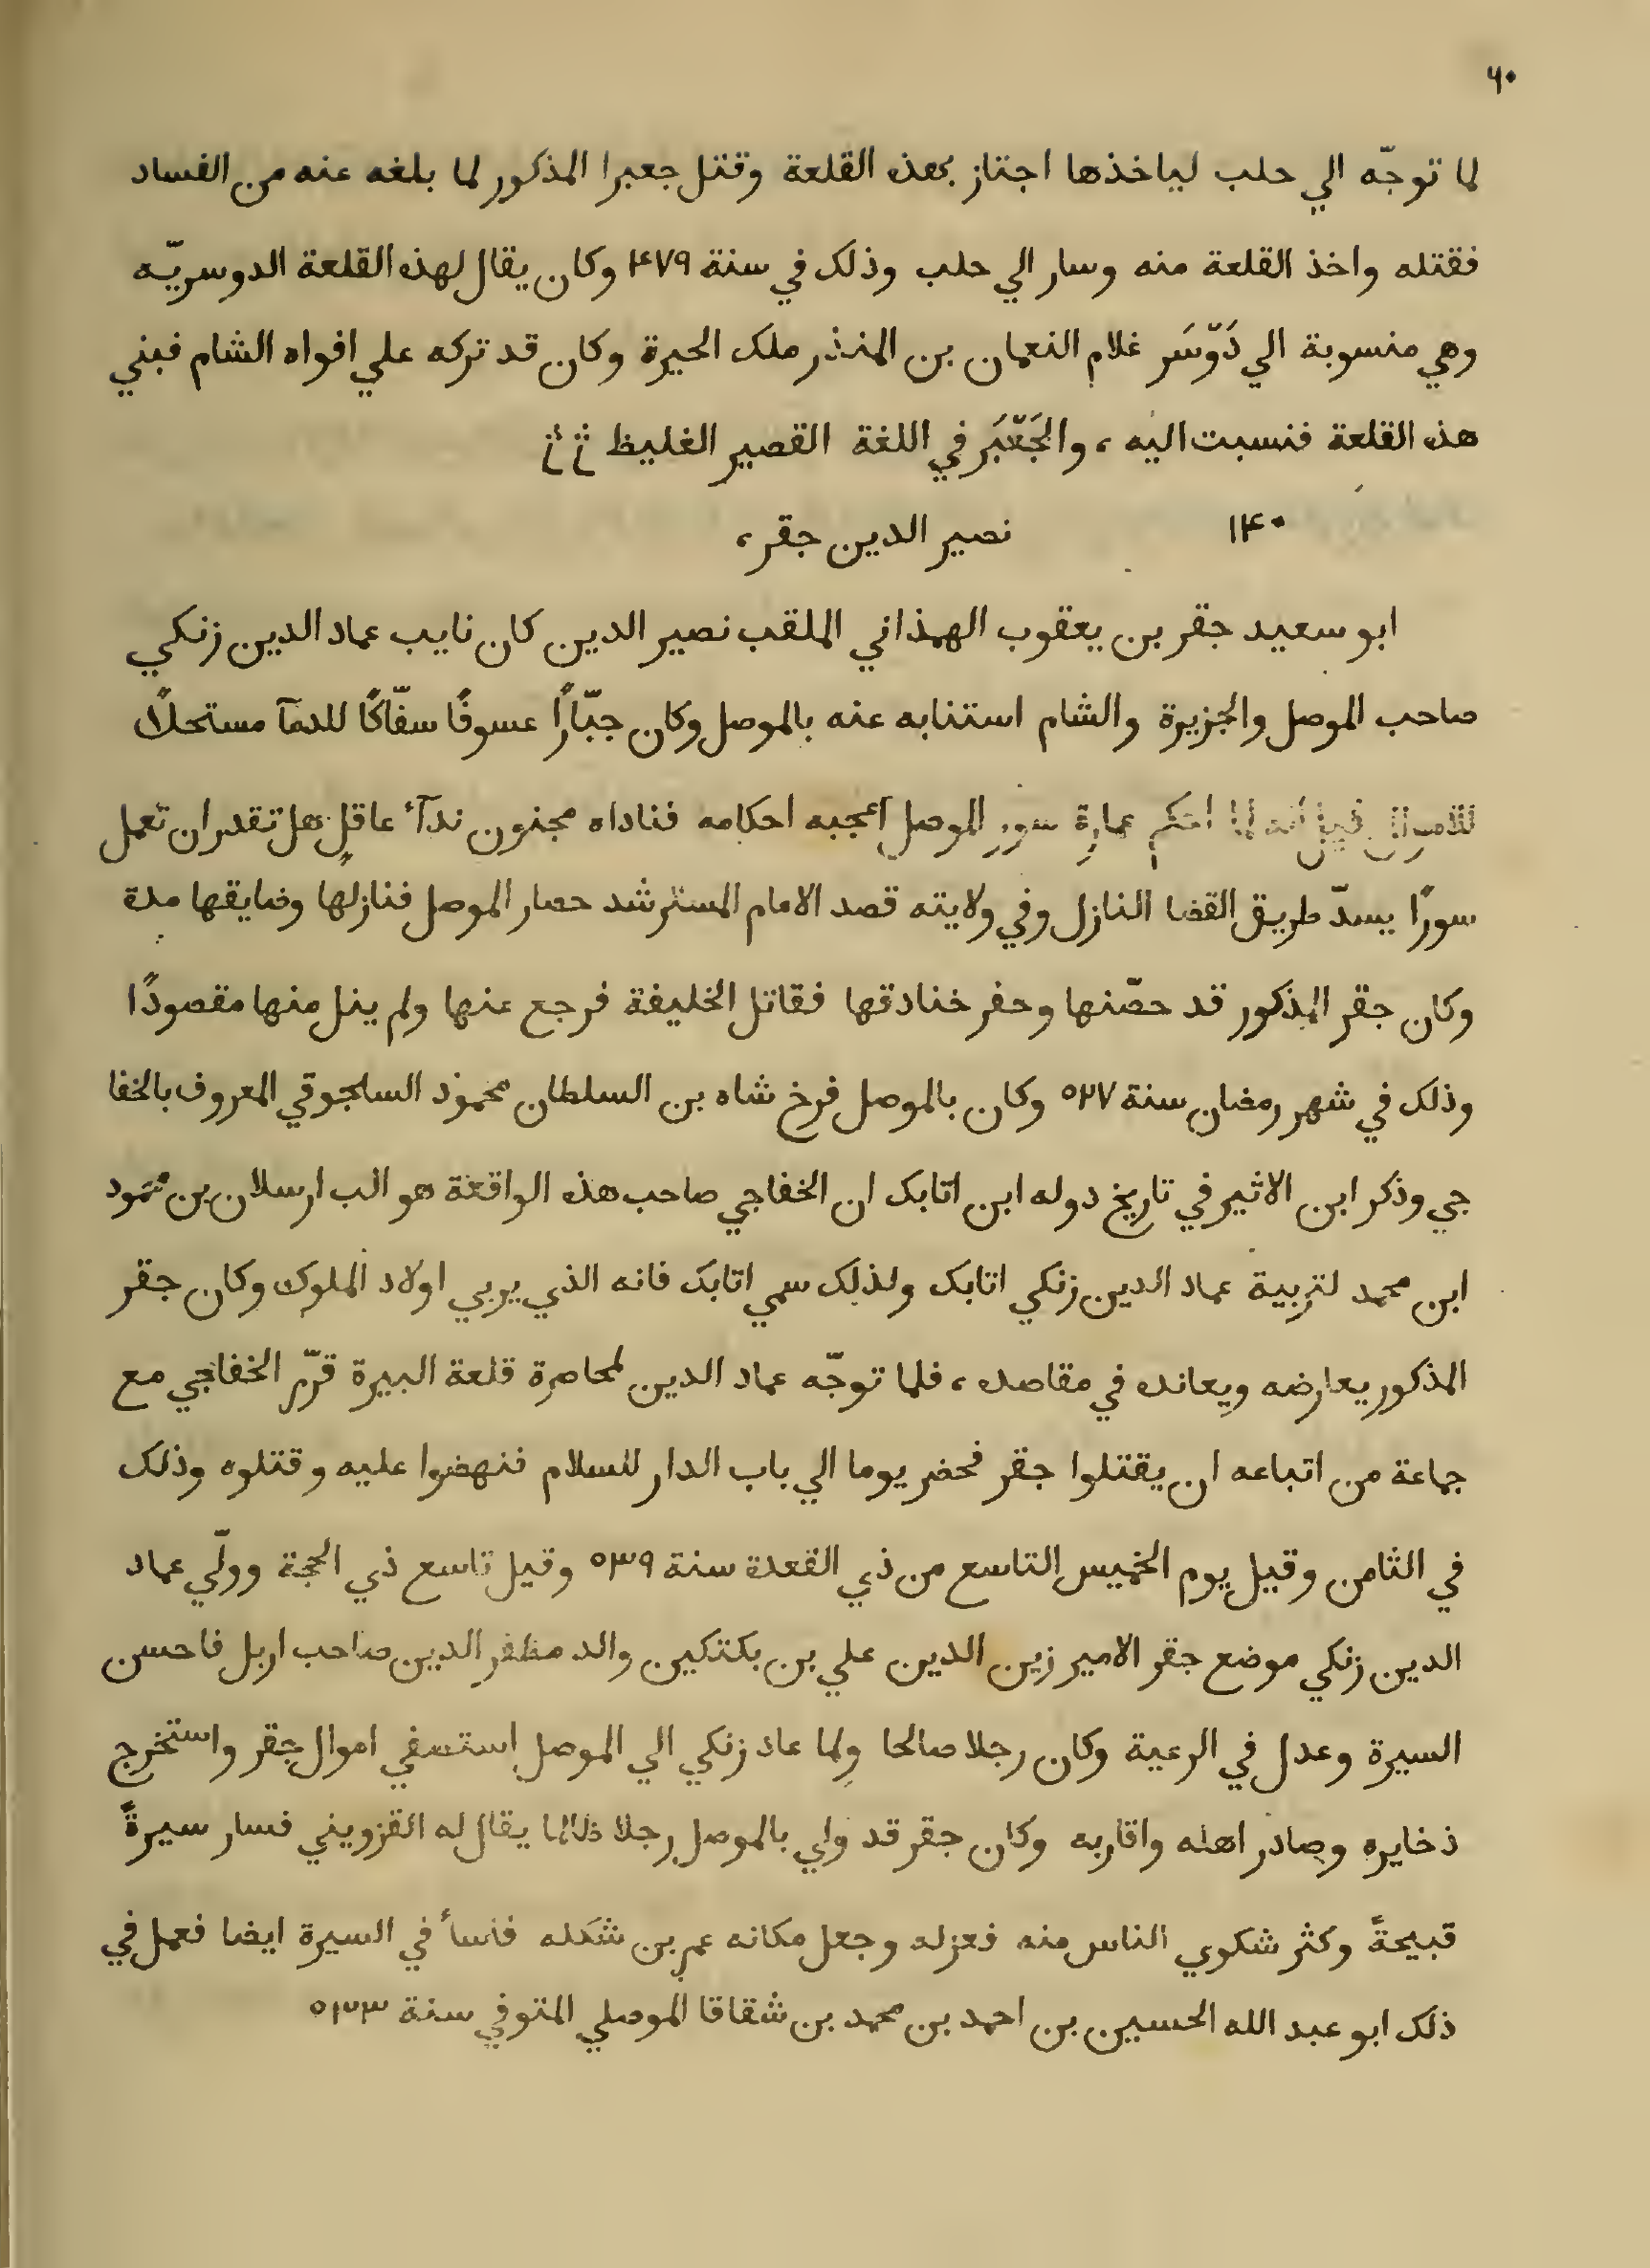 ٦٠
لما توجّه الي حلب لياخذها اجتاز بهذه القلعة وقتل جعبرا المذكور لما بلغه عنه من الفساد
فقتله واخذ القلعة منه وسار الي حلب وذلك في سنة ۴٧٩ وكان يقال لهذه القلعة الدوسريّه
وهي منسوبة الي دَوْسَر غلام النعمان بن المنذر ملك الحيرة وكان قد تركه علي افواه الشام فبني
هذه القلعة فنسبت اليه ، والجَعْبَر في اللغة القصير الغليظ
١۴٠ نصير الدين جقر ،
ابو سعيد جقر بن يعقوب الهمذاني الملقب نصير الدين كان نايب عماد الدين زنكي
صاحب الموصل والجزيرة والشام استنابه عنه بالموصل وكان جبّارًا عسوفًا سفّاكًا للدمآ مستحلًا
للاموال قيل انه لما احكم عمارة سور الموصل اعجبه احكامه فناداه مجنون ندآء عاقلٍ هل تقدر ان تعمل
سورًا يسدّ طريق القضا النازل وفي ولايته قصد الامام المسترشد حصار الموصل فنازلها وضايقها مدة
وكان جقر المذكور قد حصّنها وحفر خنادقها فقاتل الخليفة فرجع عنها ولم ينل منها مقصودًا
وذلك في شهر رمضان سنة ٥٢٧ وكان بالموصل فرخ شاه بن السلطان محمود السلجوقي المعروف بالخفا
جي وذكر ابن الاثير في تاريخ دوله ابن اتابك ان الخفاجي صاحب هذه الواقعة هو الب ارسلان بن محمود
ابن محمد لتربية عماد الدين زنكي اتابك ولذلك سمي اتابك فانه الذي يربي اولاد الملوك وكان جقر
المذكور يعارضه ويعانده في مقاصده ، فلما توجّه عماد الدين لمحاصرة قلعة البيرة قرّر الخفاجي مع
جماعة من اتباعه ان يقتلوا جقر فحضر يوما الي باب الدار للسلام فنهضوا عليه وقتلوه وذلك
في الثامن وقيل يوم الخميس التاسع من ذي القعدة سنة ٥٣٩ وقيل تاسع ذي الحجة وولّي عماد
الدين زنكي موضع جقر الامير زين الدين علي بن بكتكين والد مظفر الدين صاحب اربل فاحسن
السيرة وعدل في الرعية وكان رجلا صالحا ولما عاد زنكي الي الموصل استصفي اموال جقر واستخرج
ذخايره وصادر اهله واقاربه وكان جقر قد ولي بالموصل رجلا ظالما يقال له القزويني فسار سيرةً
قبيحةً وكثر شكوي الناس منه فعزله وجعل مكانه عمر بن شكله فاسأ في السيرة ايضا فعمل في
ذلك ابو عبد الله الحسين بن احمد بن محمد بن شقاقا الموصلي المتوفي سنة ٥٣٣